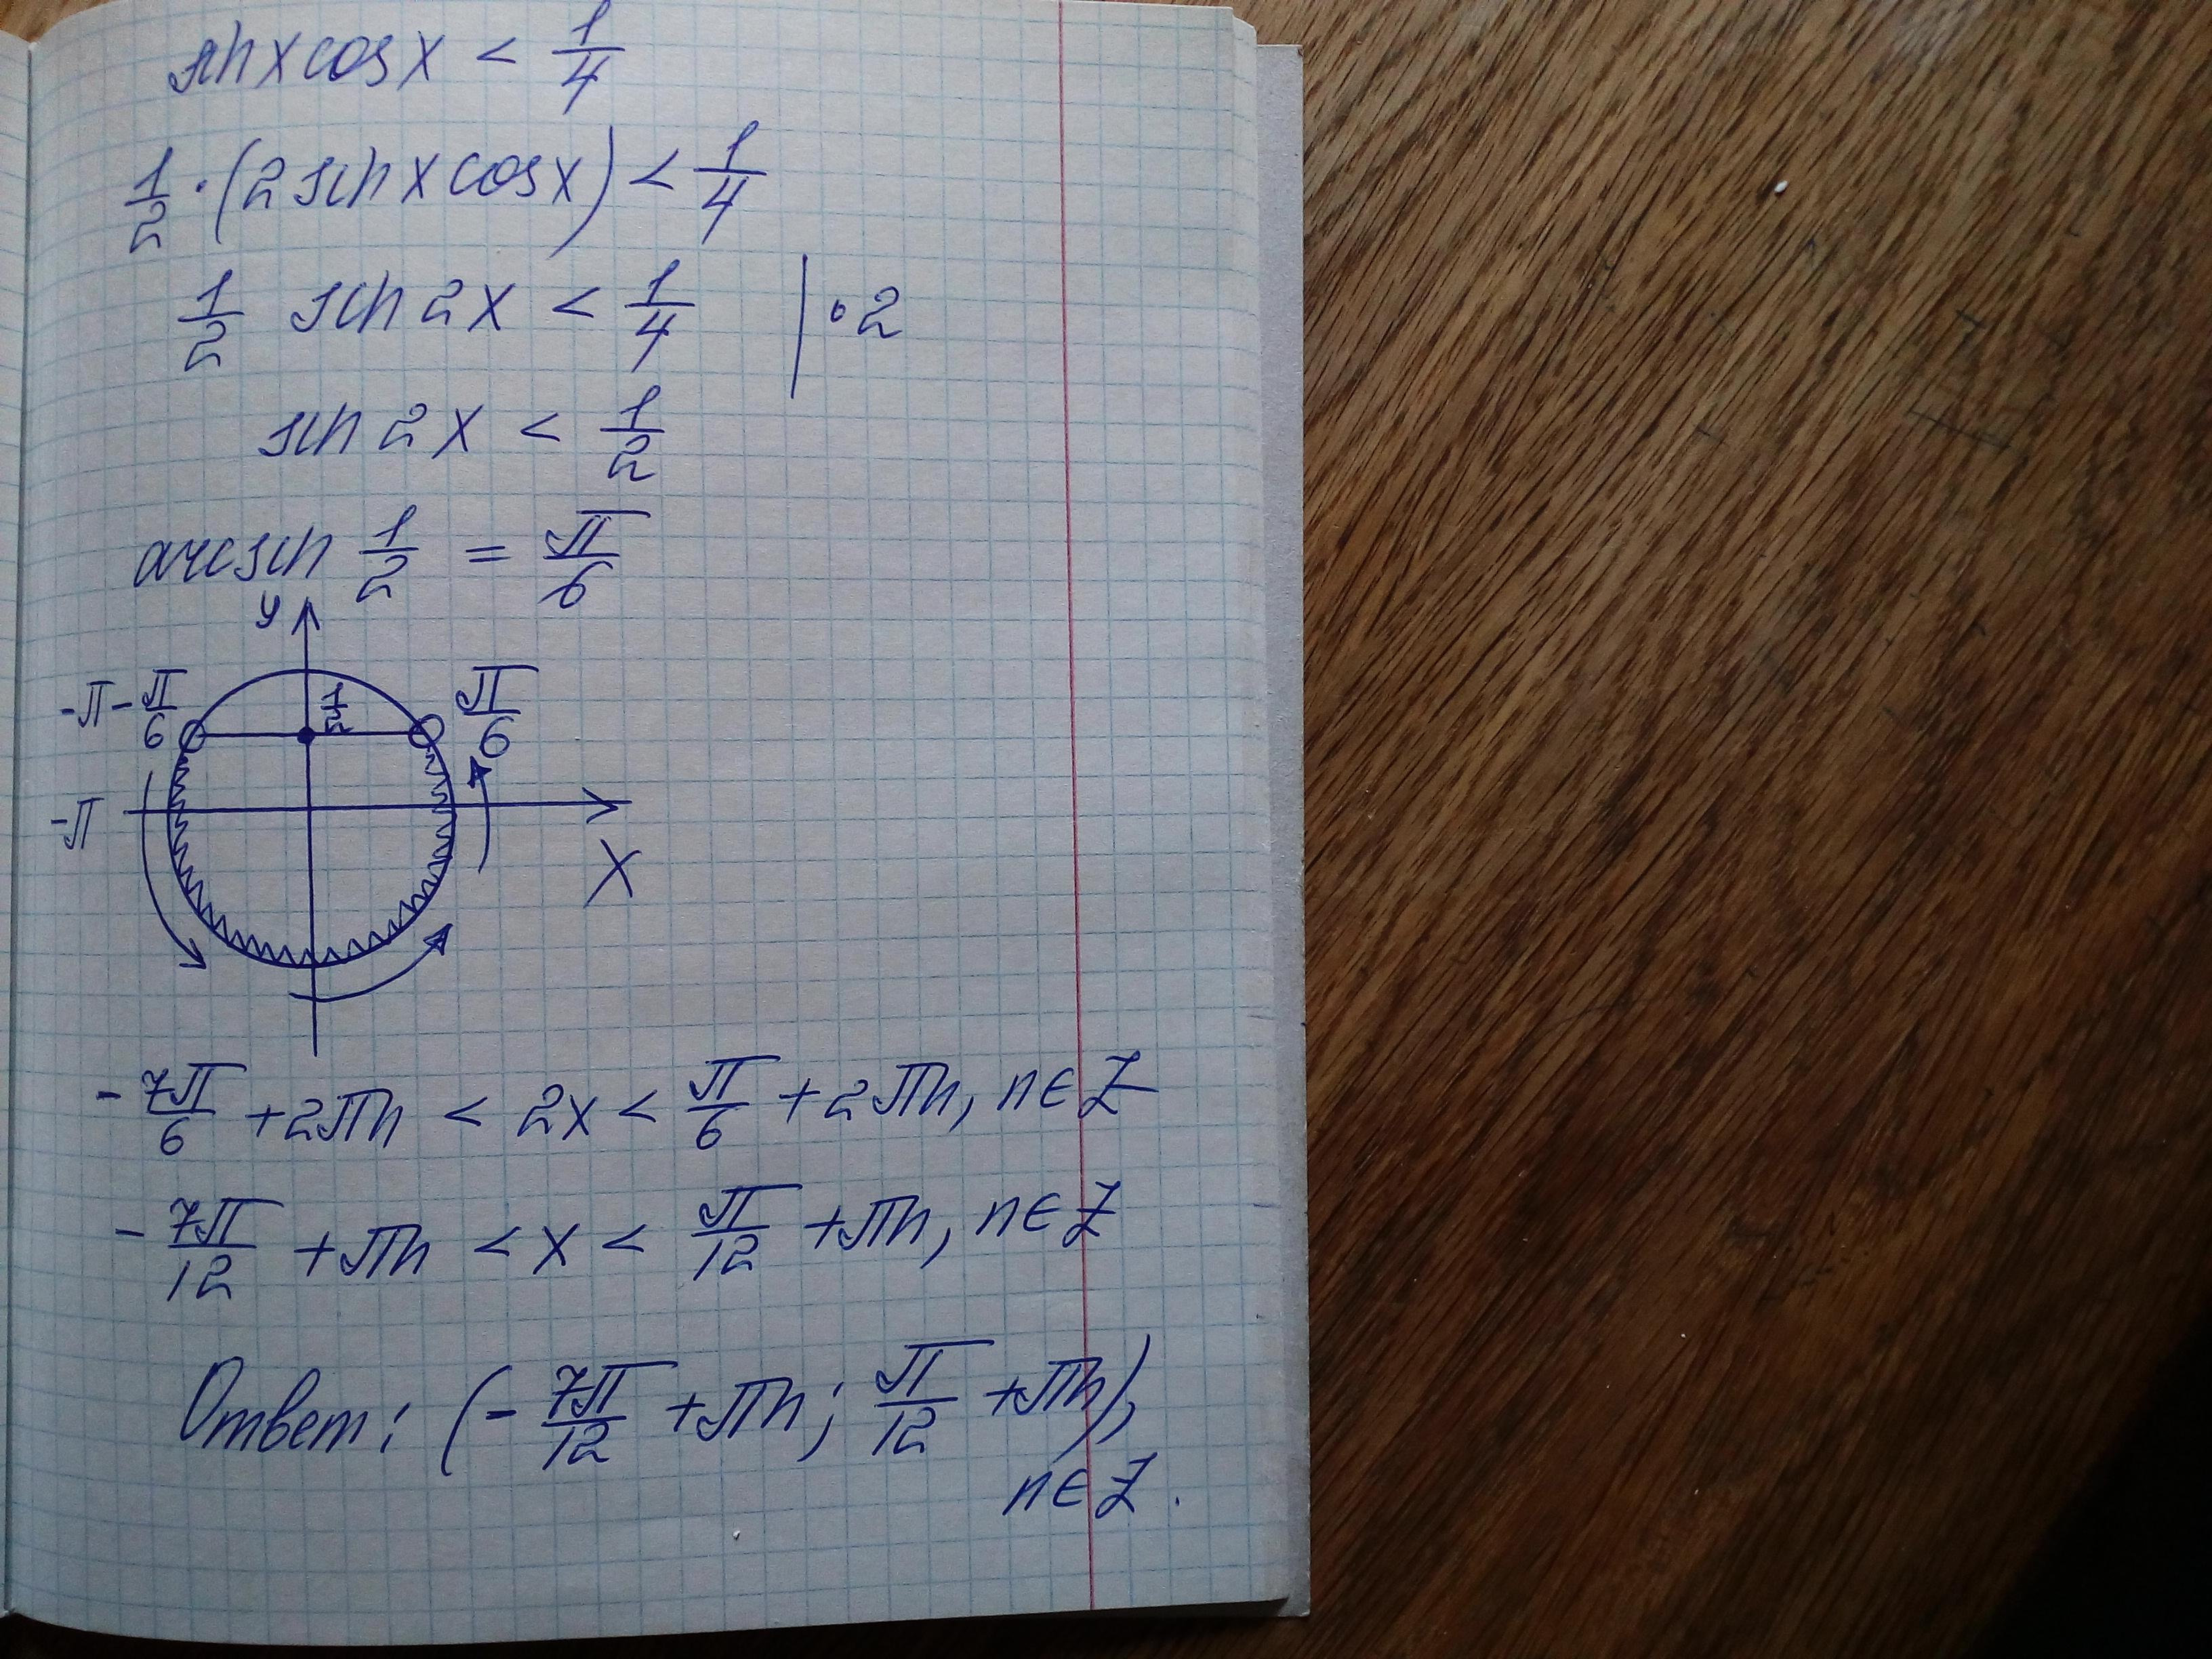 sin x cos x < 1/4
1/2 · (2 sin x cos x) < 1/4
1/2 sin 2x < 1/4 | · 2
sin 2x < 1/2
arcsin 1/2 = π/6
y
-π - π/6 1/2 π/6
-π
X
- 7π/6 + 2πn < 2x < π/6 + 2πn, n ∈ Z
- 7π/12 + πn < x < π/12 + πn, n ∈ Z
Ответ: (- 7π/12 + πn; π/12 + πn),
n ∈ Z.